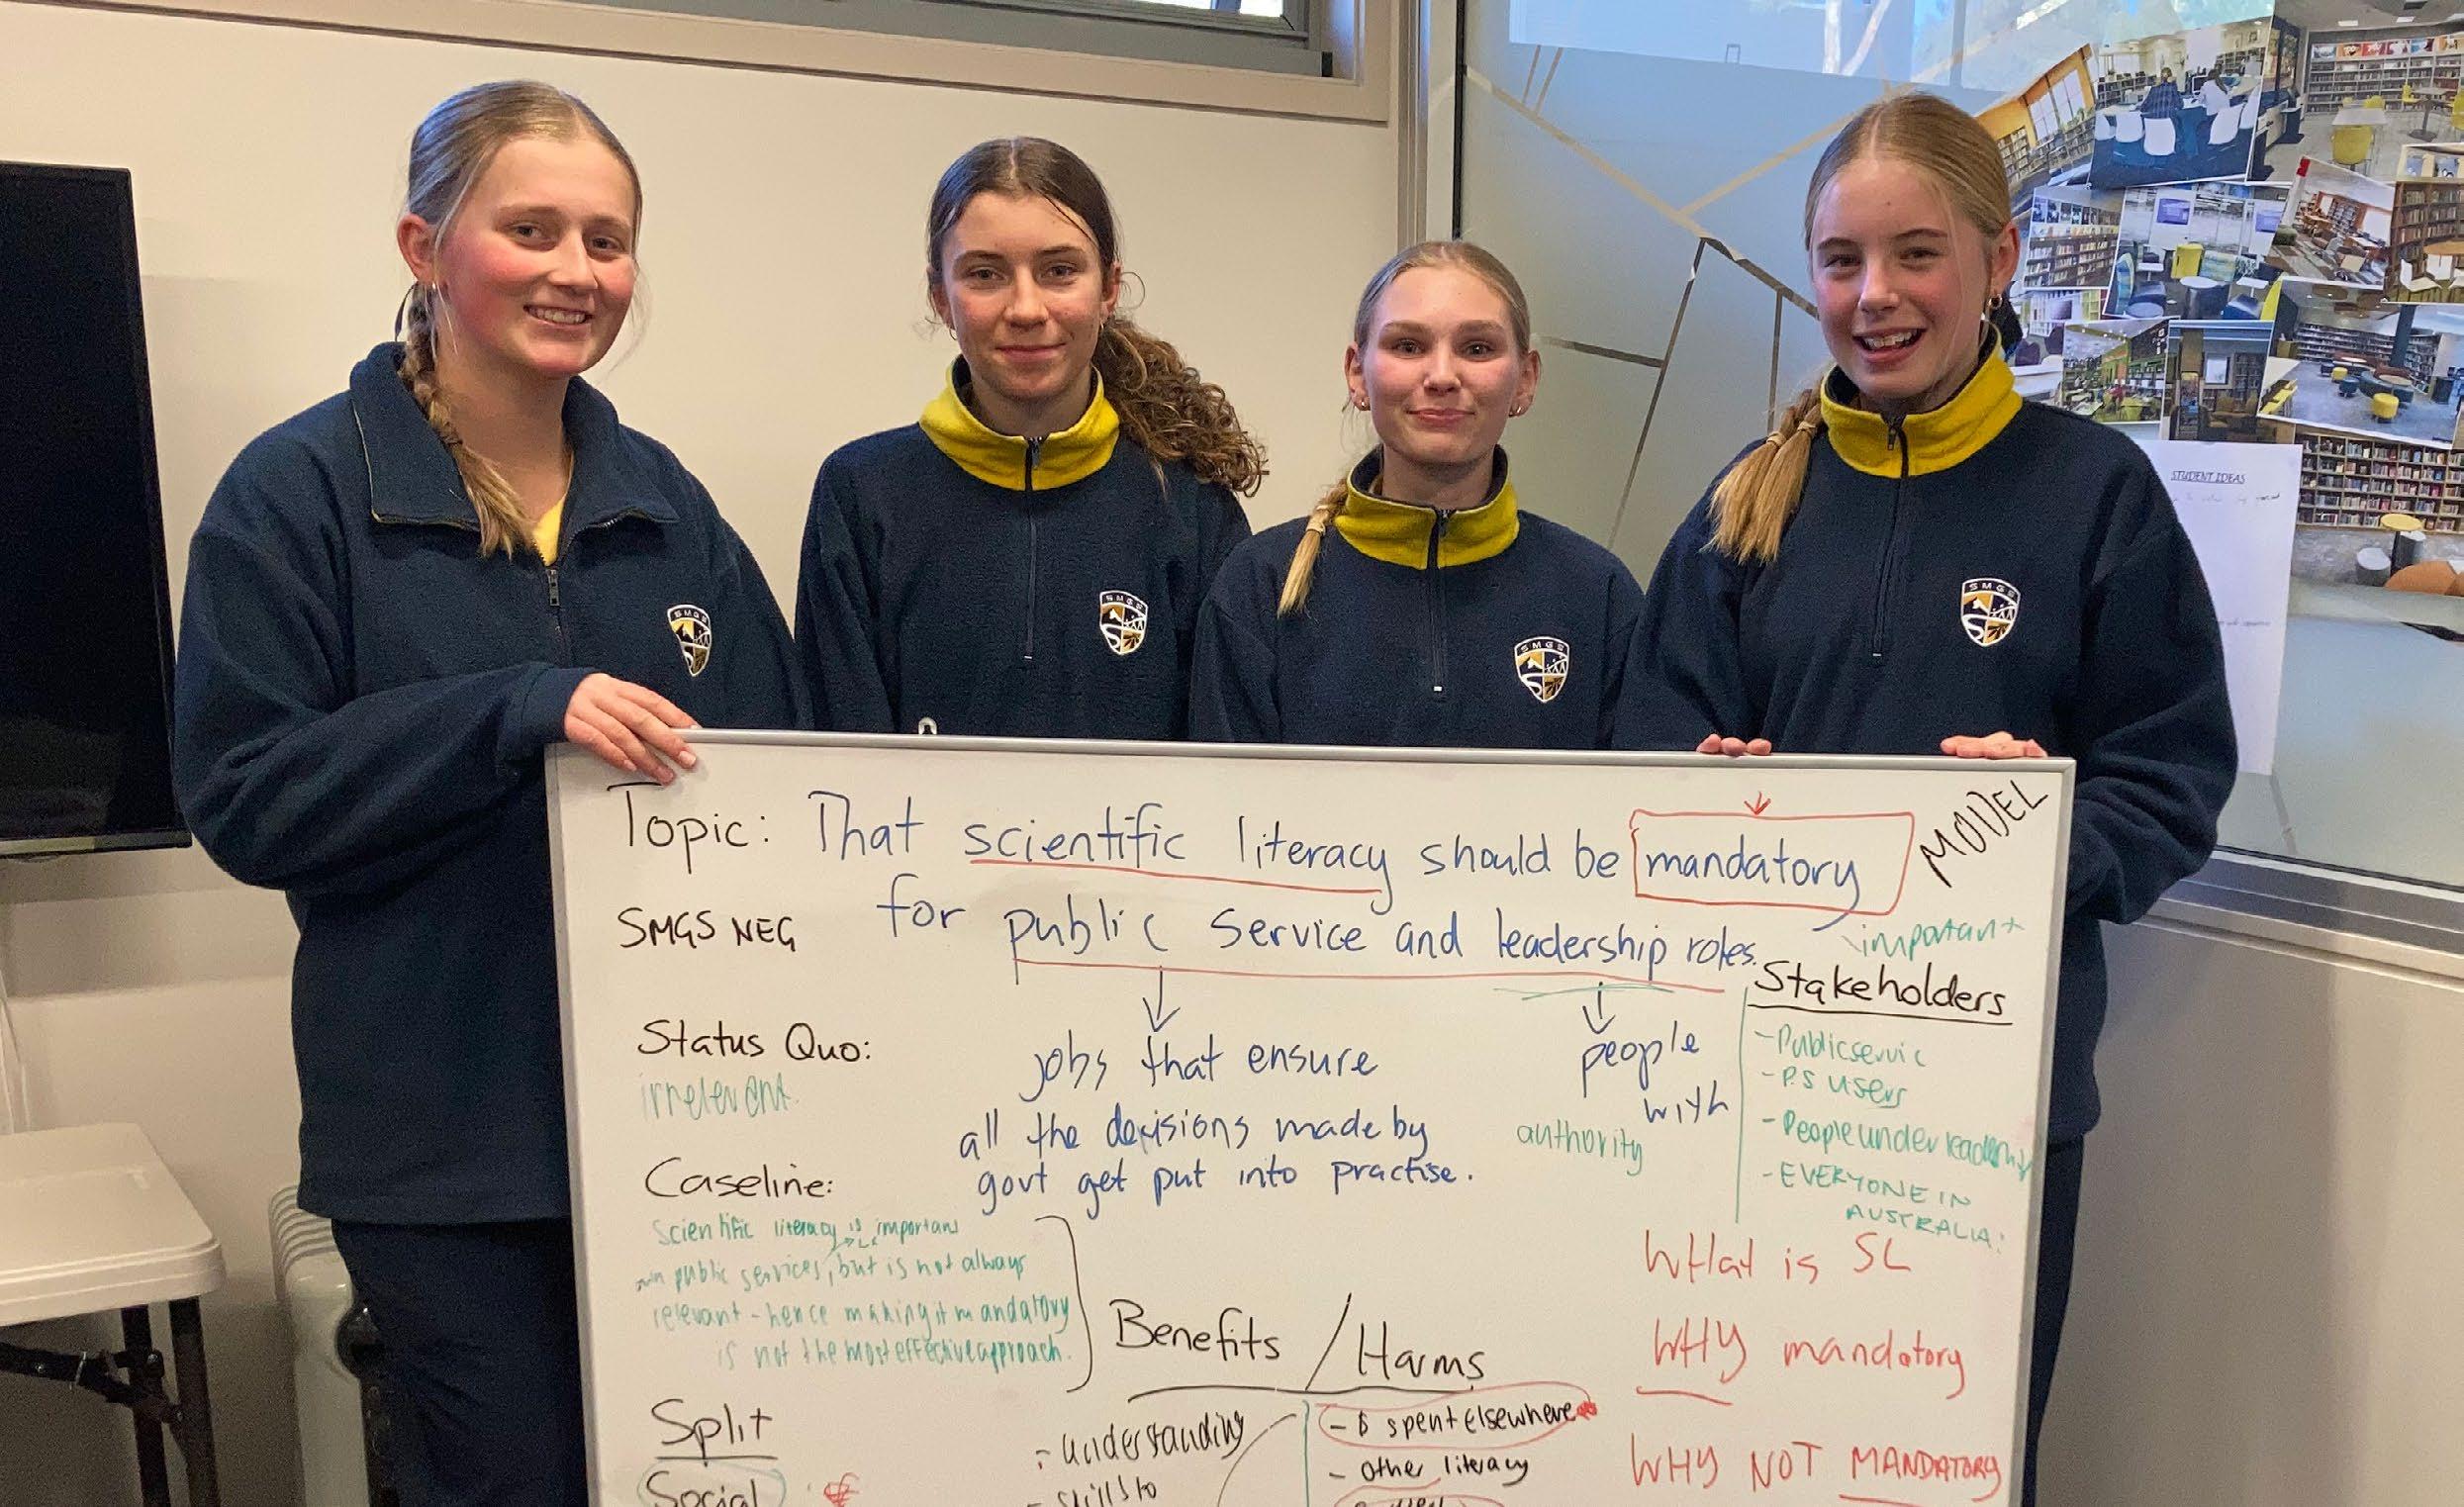 SMGS
SMGS
SMGS
SMGS
STUDENT IDEAS
Topic: That scientific literacy should be mandatory
for public service and leadership roles.
MODEL
SMGS NEG
important
Stakeholders
- Public servic
- P.S users
- People under leadership
- EVERYONE IN
AUSTRALIA!
Status Quo:
irrelevent.
jobs that ensure
all the decisions made by
govt get put into practise.
people
with
authority
Caseline:
Scientific literacy is important
in public services, but is not always
relevant - hence making it mandatory
is not the most effective approach.
WHat is SL
WHY mandatory
WHY NOT MANDATORY
Benefits / Harms
- understanding
- skills to
- $ spent elsewhere
- other literacy
Split
Social